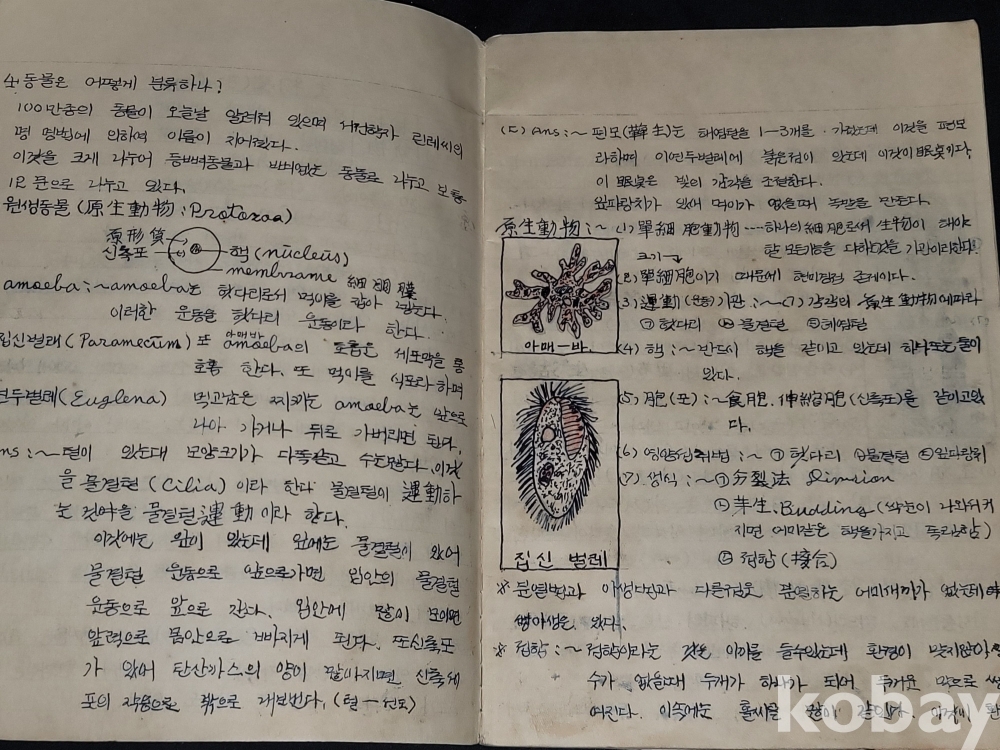 4. 동물은 어떻게 분류하나?
100만종의 동물이 오늘날 알려져 있으며 린레씨의
명명법에 의하여 이름이 지어졌다.
이것을 크게 나누어 등뼈동물과 동물로 나누고 보통
12 문으로 나누고 있다.
원생동물 (原生動物 : Protozoa)
原形質
신축포
핵 (nucleus)
membrame 細胞膜
amoeba : ~ amoeba는 헛다리로서 먹이를 잡아 먹는다.
이러한 운동을 헛다리 운동이라 한다.
집신벌레 (Paramecium) 또 amoeba의 호흡은 세포막을 통
아메바
호흡 한다. 또 먹이를 식포라 하며
연두벌레 (Euglena) 먹고남은 찌꺼는 amoeba는 앞으로
나아 가거나 뒤로 가버리면 된다.
ns : ~ 털이 있는데 모양크기가 다똑같고 수는많다. 이것
을 물결털 (Cilia) 이라 한다 물결털이 運動하
는 것여을 물결털運動이라 한다.
이것에는 입이 있는데 입에는 물결털이 있어
물결털 운동으로 앞으로가면 입안의 물결털
운동으로 앞으로 간다. 입안에 많이 모이면
압력으로 몸안으로 빠지게 된다. 또신축포
가 있어 탄산가스의 양이 많아지면 신축
포의 작용으로 밖으로 내보낸다.
(ㄷ) ans : ~ 편모는 헤엄털을 1-3개를 가졌는데 이것을 편모
라하며 이연두벌레에 붉은점이 있는데 이것이 眼点이다.
이 眼点은 빛의 감각을 조절한다.
잎파랑치가 있어 먹이가 없을때 녹말을 만든다.
原生動物 : ~ (1) 單細胞動物 --- 하나의 細胞로서 生物이 해야
할 모든기능을 다하것을 기관이라한다.
크기→
(2) 單細胞이기 때문에 현미경적 존재이다.
(3) 運動 (운동) 기관 : ~ (ㄱ) 각각의 原生動物에따라
㉠ 헛다리 ㉡ 물결털 ㉢ 헤엄털
아매-바.
(4) 핵 : ~ 반드시 핵을 같이고 있는데 하나또는 둘이
있다.
(5) 胞(포) : ~ 食胞. 伸縮胞(신축포)를 같이고있
다.
(6) 영양섭취법 : ~ ㉠ 헛다리 ㉡ 물결털 ㉢ 잎파랑치
(7) 생식 : ~ ㉠ 分裂法
㉡ 芽生. Budding (싹눈이 나와뒤커
지면 어미같은 핵을가지고 독립함)
㉢ 접합 (接合)
집신 벌레
※ 분열법과 아생법과 다른점은 분열하는 어미새끼가 없는데
생아생은 있다
※ 접합 : ~ 접합이라는 것은 이끼를 들수있는데 환경이 맞지않아
수가 없을때 두개가 하나가 되어 두꺼운 막으로
여진다. 이속에는 홀씨를 많이
kobay